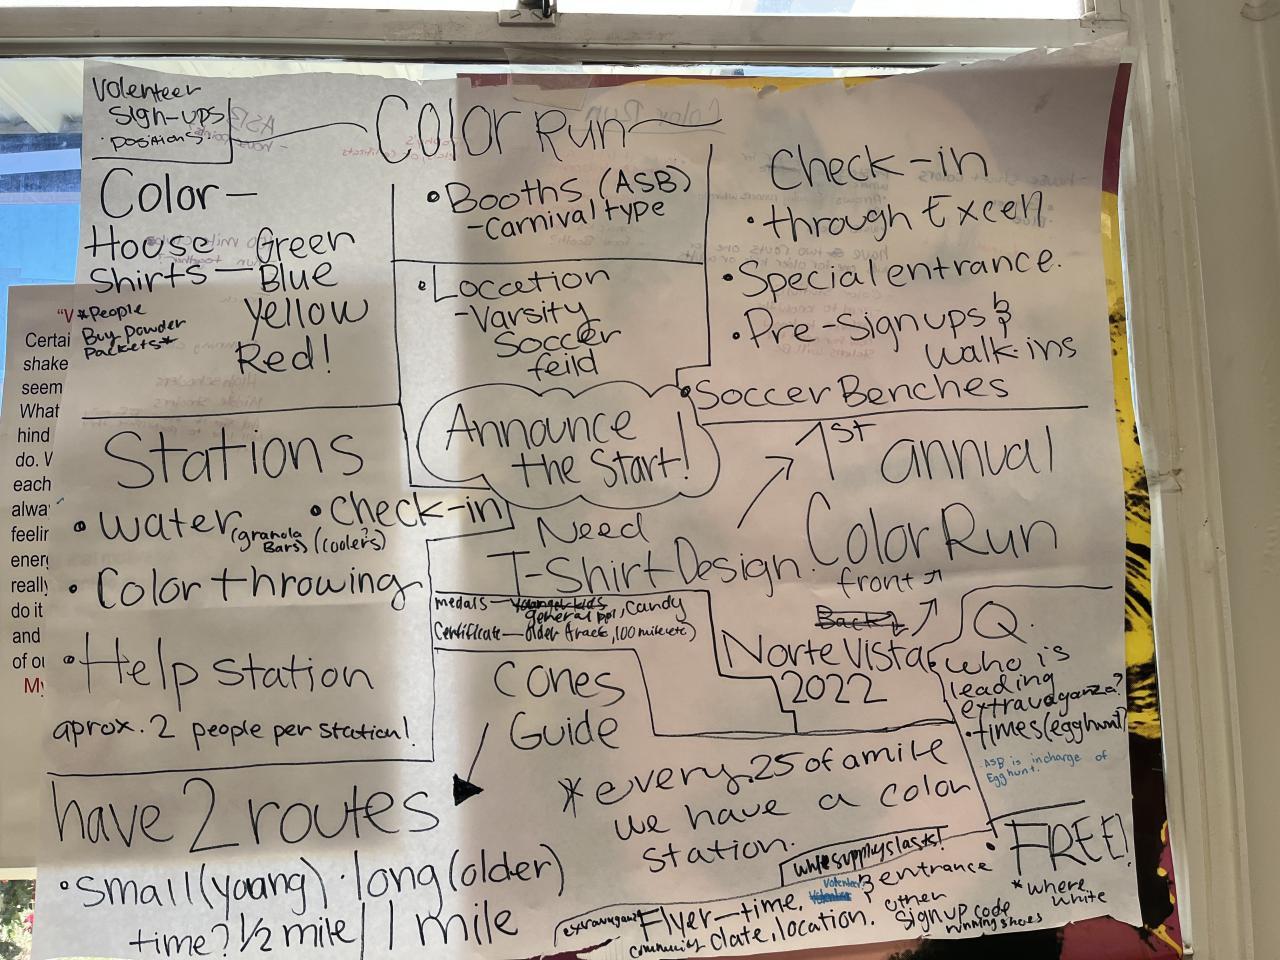 Volenteer
Sign-ups
• positions •
Color Run
Color —
House — Green
Shirts — Blue
Yellow
Red!
*People
Buy powder
packets*
• Booths (ASB)
- Carnival type
• Location
- Varsity
Soccer
feild
Check-in
• through Excell
• Special entrance.
• Pre-Sign ups &
walk-ins
• Soccer Benches
Announce
the Start!
Stations
• water • check-in
(granola (coolers?)
Bars)
• Color throwing
• Help station
aprox. 2 people per station!
1st annual
Color Run
front
Need
T-Shirt Design.
medals — general ppl, candy
Certificate — older track, 100 mile etc)
Back
Norte Vista
2022
Cones
Guide
Q.
• who is
leading
extravaganza?
• times (egg hunt)
ASB is incharge of
Egg hunt.
have 2 routes
• small (young) • long (older)
time? 1/2 mile / 1 mile
* every .25 of a mile
we have a color
station.
while supplys lasts!
• FREE!
* where
white
running shoes
Flyer — time,
community date, location.
Volenteer
entrance
other
sign up code
"V
Certai
shake
seem
What
hind
do. V
each
alwa
feelir
energ
really
do it
and
of ou
My